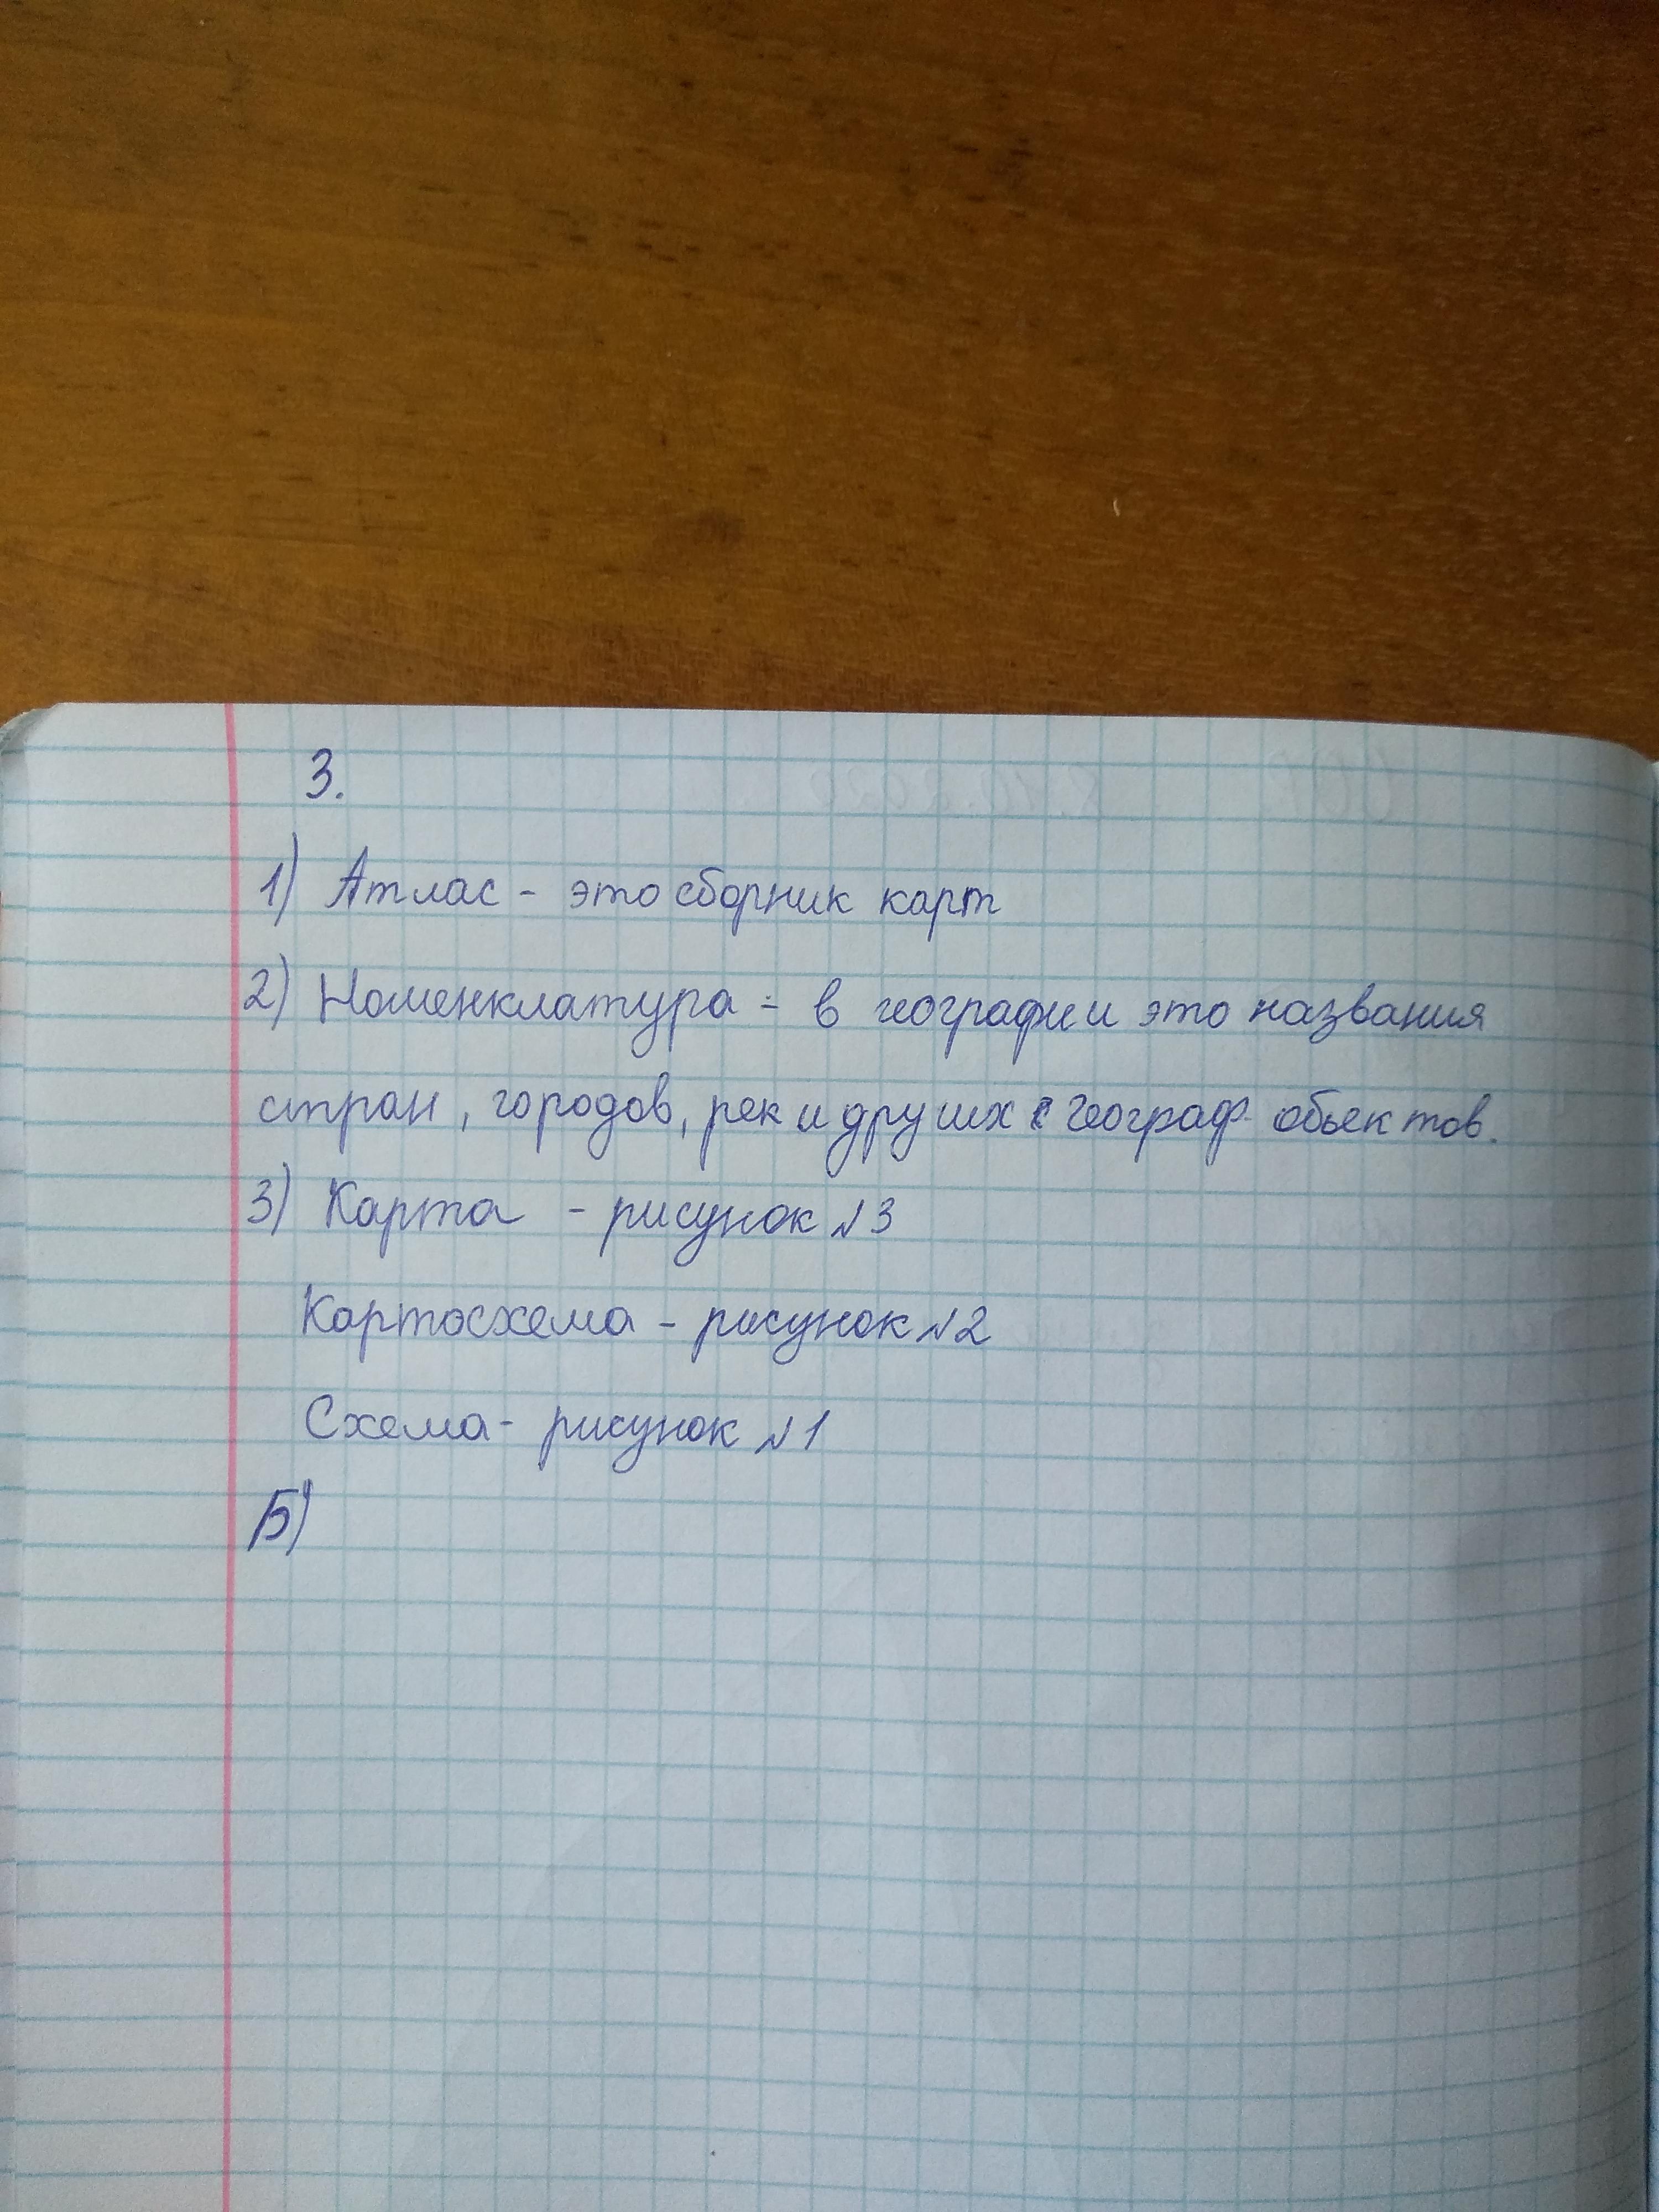 3.
1) Атлас - это сборник карт
2) Номенклатура - в географии это названия
стран, городов, рек и других географ. обьектов.
3) Карта - рисунок №3
Картосхема - рисунок №2
Схема - рисунок №1
Б)